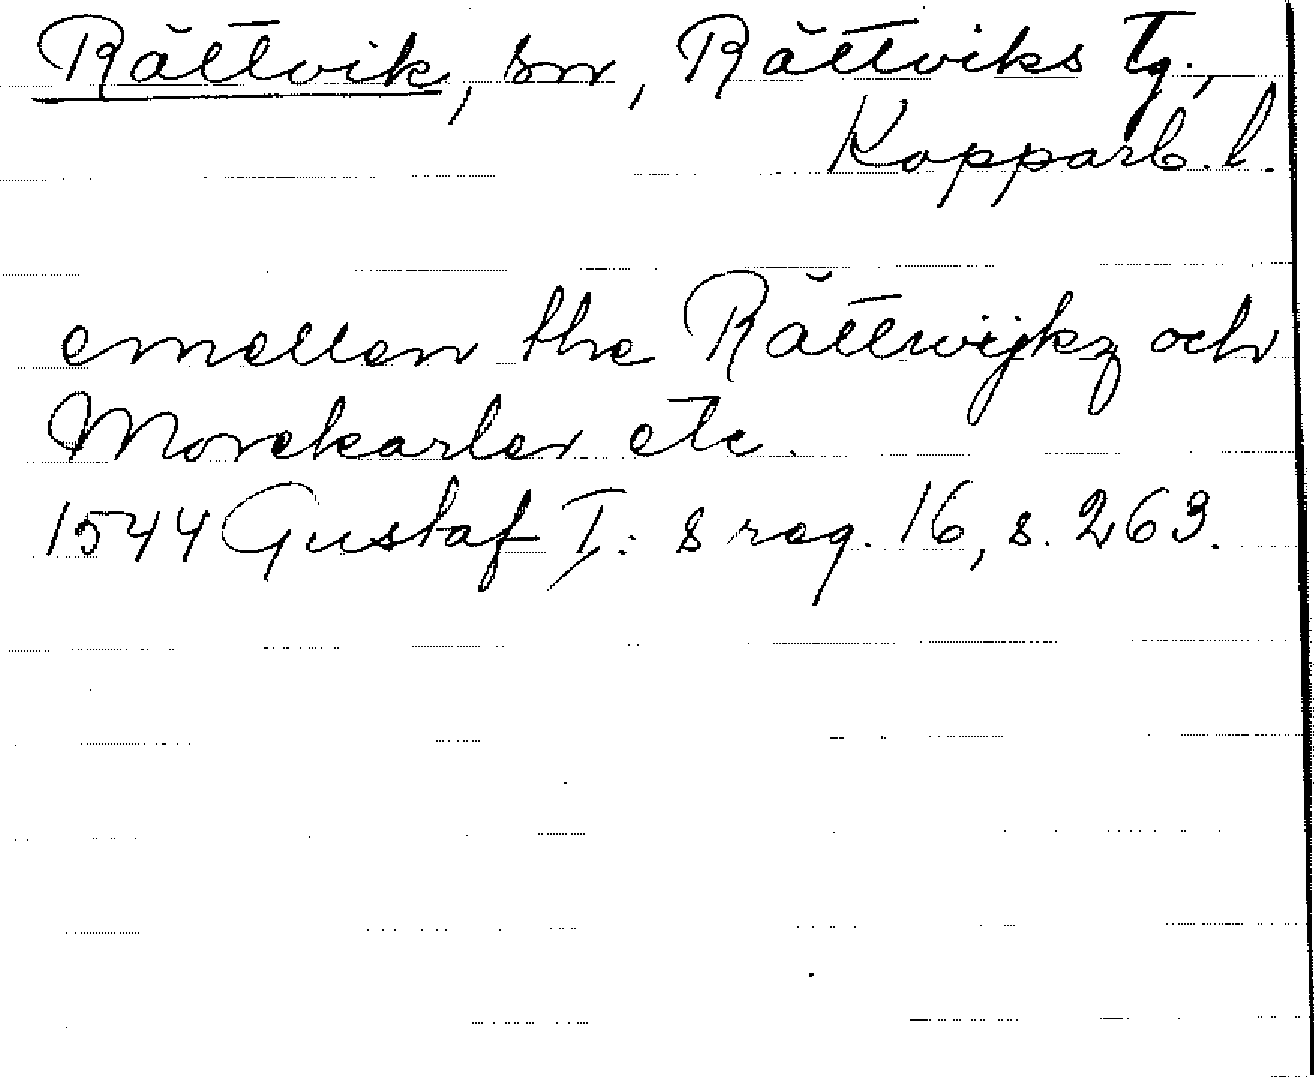 Rättvik, sn, Rättviks tg.,
Kopparb. l.
emellen the Rättwijkz och
Morekarler etc.
1544 Gustaf I: s reg. 16, s. 263.